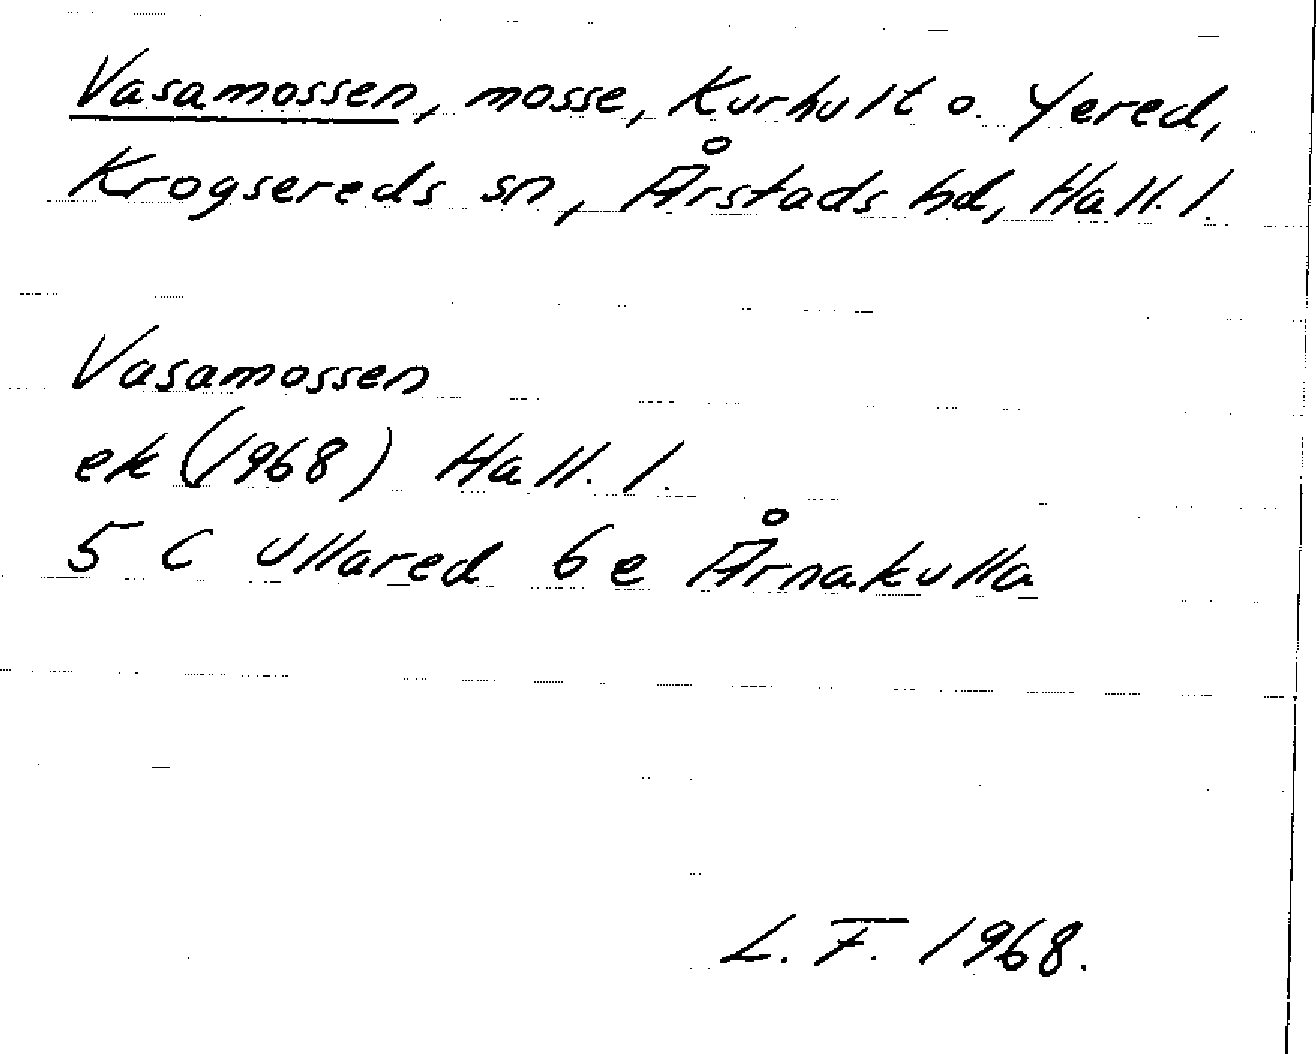 Vasamossen, mosse, Kurhult o. Yered,
Krogsereds sn, Årstads hd, Hall. l.
Vasamossen
ek (1968) Hall. l.
5 C Ullared 6 e Årnakulla
L. F. 1968.